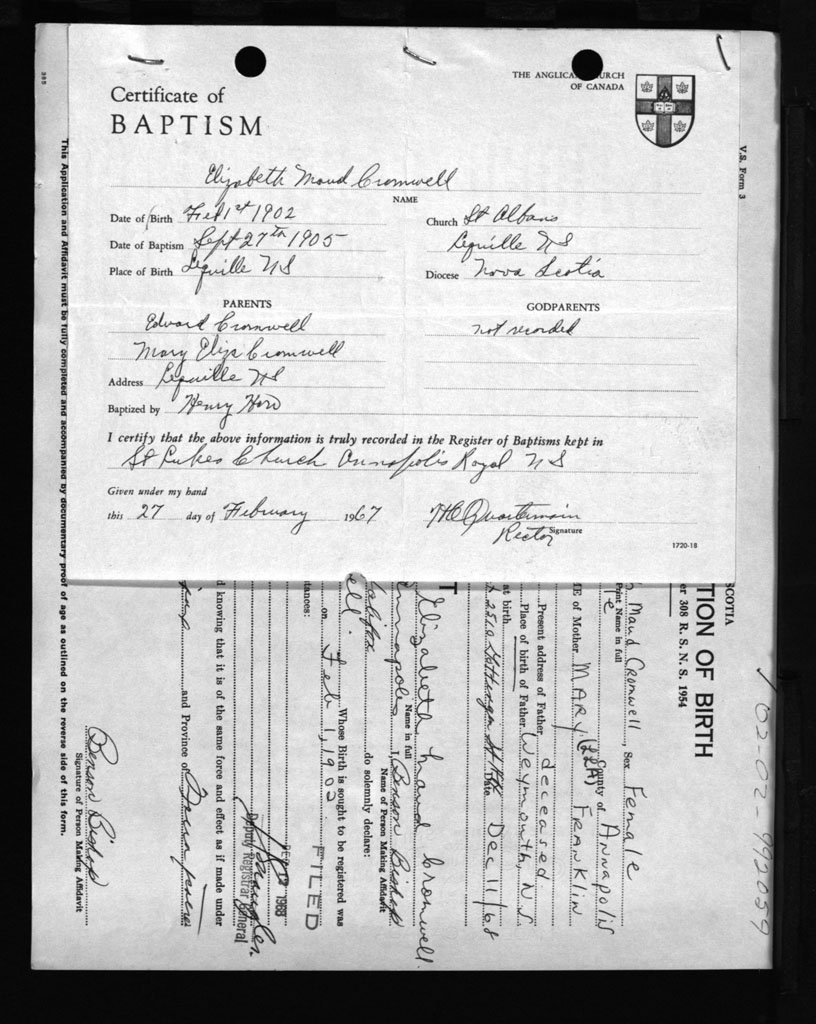 Certificate of
BAPTISM
THE ANGLICAN CHURCH
OF CANADA
Elizabeth Maud Cromwell
NAME
Date of Birth Feb 1st 1902
Church St Albans
Date of Baptism Sept 27th 1905
Lequille NS
Place of Birth Lequille NS
Diocese Nova Scotia
PARENTS
GODPARENTS
Edward Cromwell
not recorded
Mary Eliza Cromwell
Address Lequille NS
Baptized by Henry How
I certify that the above information is truly recorded in the Register of Baptisms kept in
St Lukes Church Annapolis Royal NS
Given under my hand
this 27 day of February 1967
Rector Signature
1720-18
V.S. Form 3
This Application and Affidavit must be fully completed and accompanied by documentary proof of age as outlined on the reverse side of this form.
SCOTIA
TION OF BIRTH
er 308 R. S. N. S. 1954
02-02-992059
Maud Cromwell, Sex Female
Print Name in full
County of Annapolis
E of Mother MARY (ELLA) FRANKLIN
Present address of Father deceased
Place of birth of Father Weymouth, N.S
at birth
Date Dec 11/68
Elizabeth Maud Cromwell
Name in full
Annapolis
I, Benson Bishop
Name of Person Making Affidavit
Halifax
do solemnly declare:
ell.
Whose Birth is sought to be registered was
on Feb 1, 1902
tances:
FILED
1968
Deputy Registrar General
d knowing that it is of the same force and effect as if made under
and Province of
Benson Bishop
Signature of Person Making Affidavit